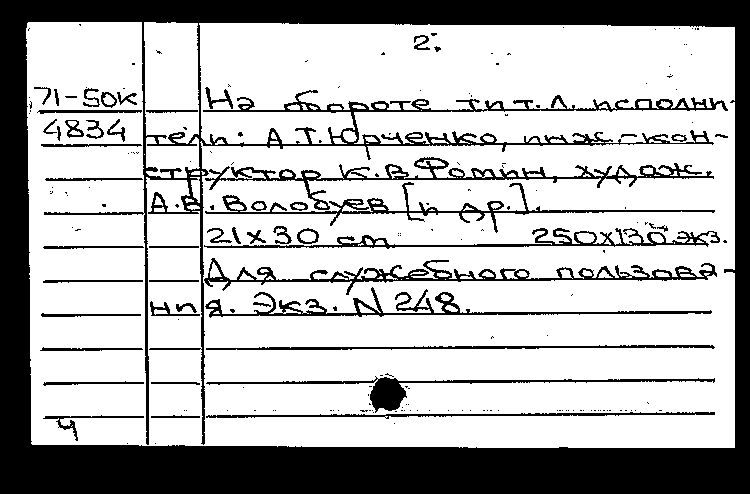 2.
71-50к На обороте тит. л. исполни-
4834 тели: А.Т.Юрченко, инж.-кон-
структор К.В.Фомин, худож.
А.В.Волобуев [и др.].
21х30 см 250х130 экз.
Для служебного пользова-
ния. Экз. N 248.
Ч